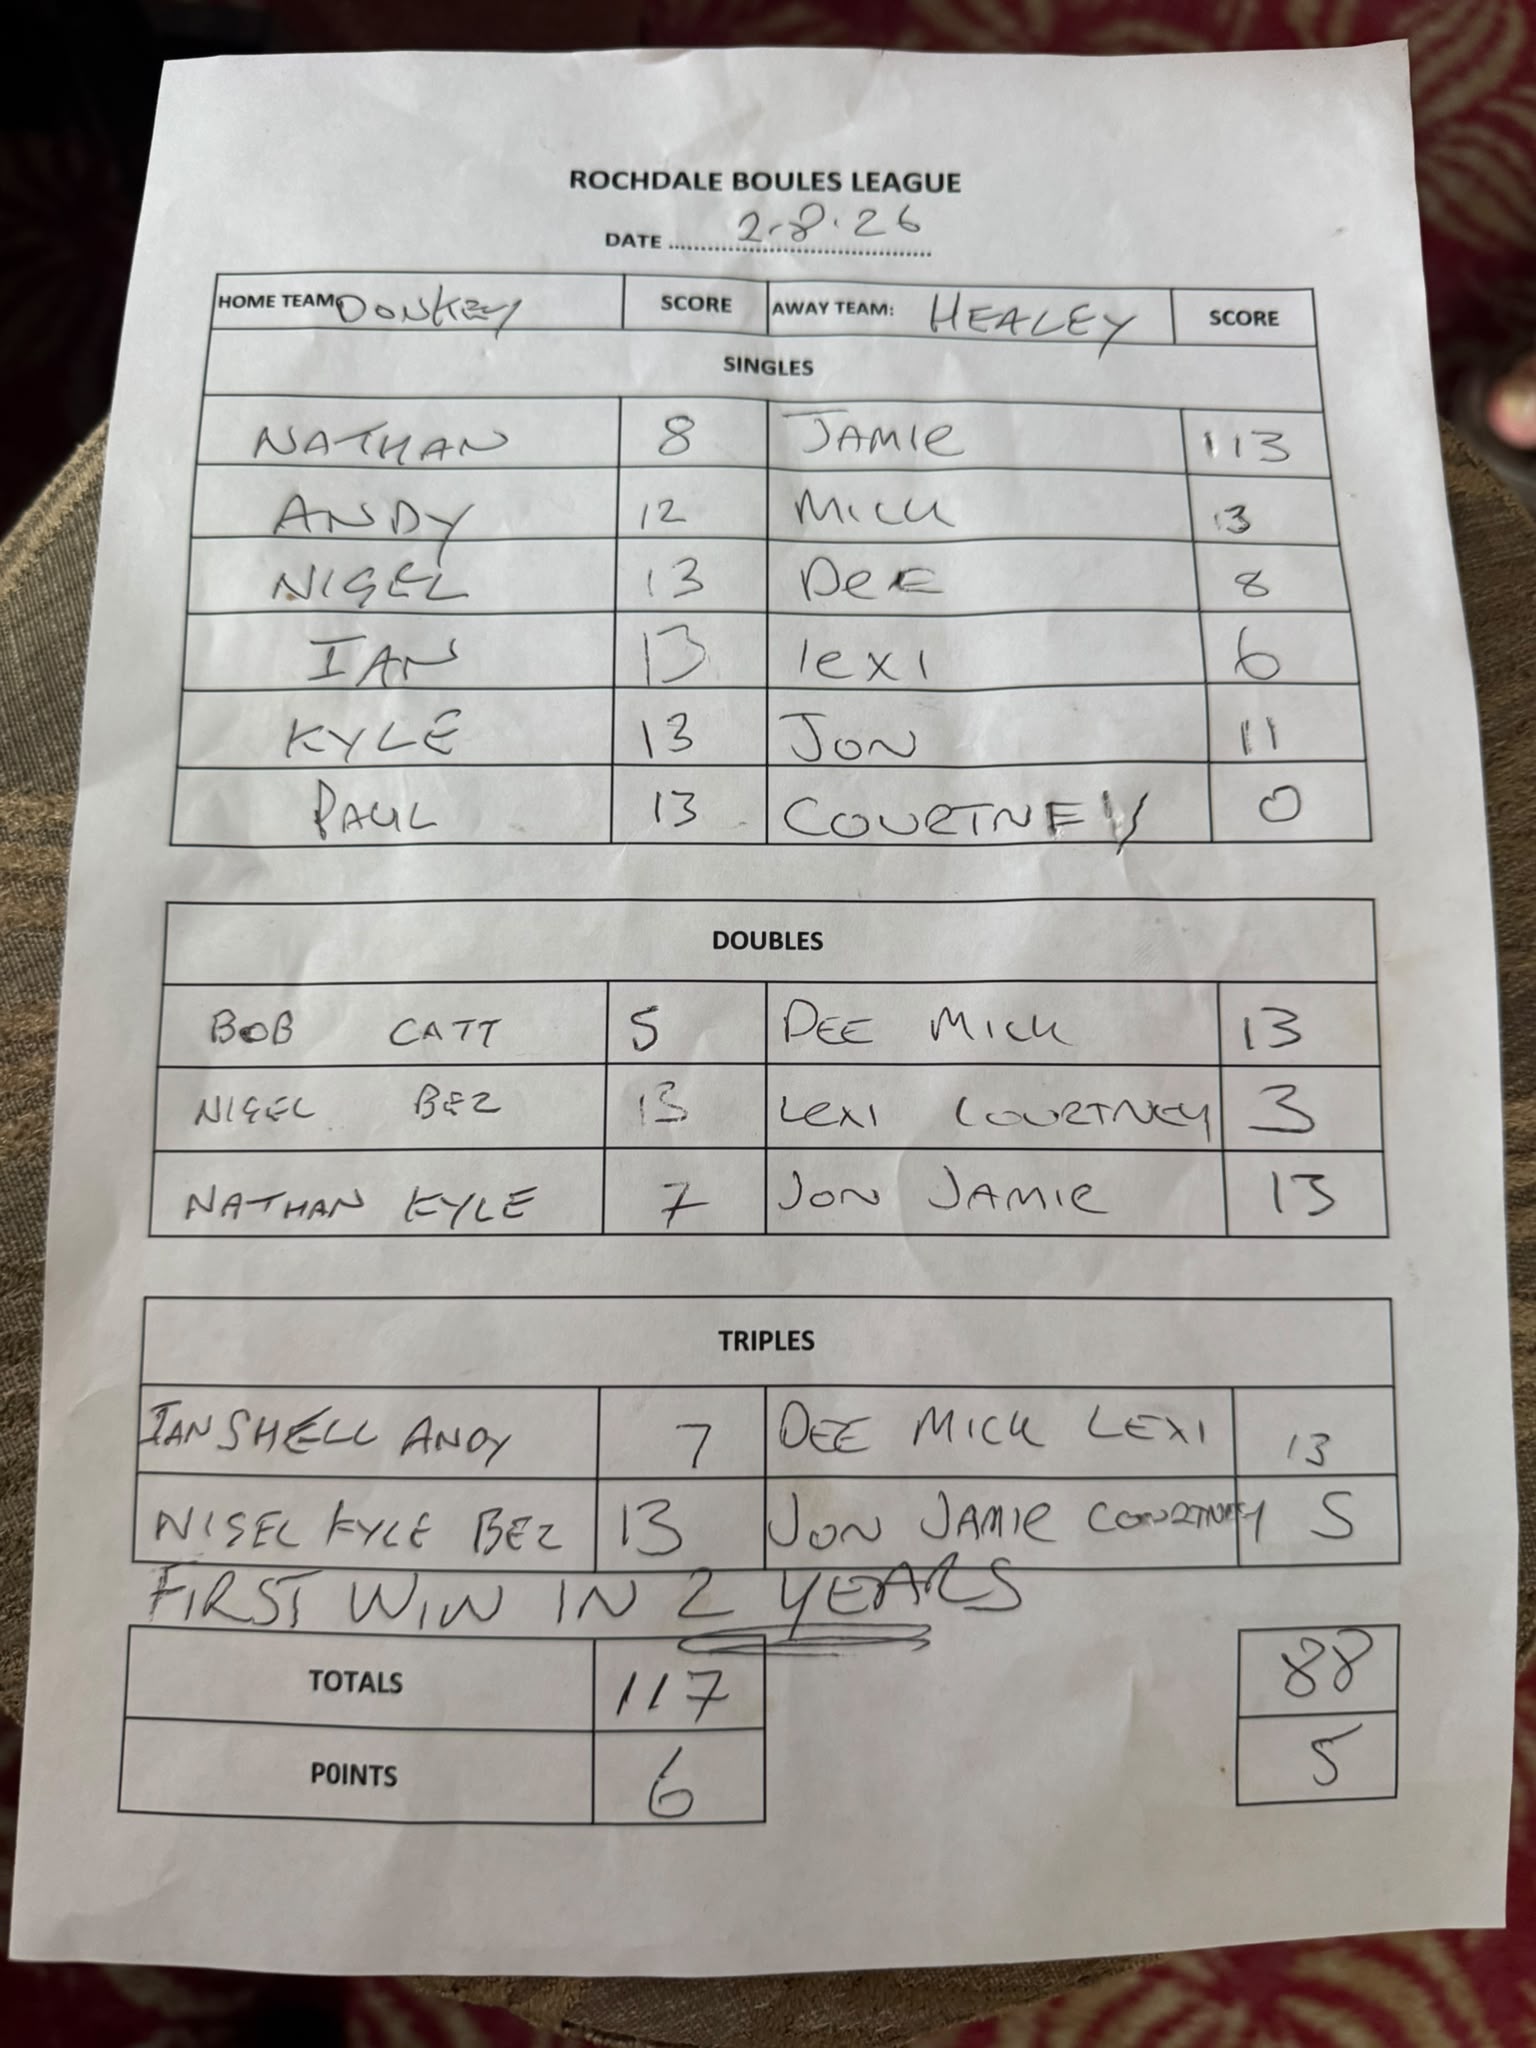 ROCHDALE BOULES LEAGUE
DATE 2.8.26
HOME TEAM: DONKEY SCORE AWAY TEAM: HEALEY SCORE
SINGLES
NATHAN 8 JAMIE 13
ANDY 12 MICK 13
NIGEL 13 DEE 8
IAN 13 lexi 6
KYLE 13 JON 11
PAUL 13 COURTNEY 0
DOUBLES
BOB CATT 5 DEE MICK 13
NIGEL BEZ 13 LEXI COURTNEY 3
NATHAN KYLE 7 JON JAMIE 13
TRIPLES
IAN SHELL ANDY 7 DEE MICK LEXI 13
NIGEL KYLE BEZ 13 JON JAMIE COURTNEY 5
FIRST WIN IN 2 YEARS
TOTALS 117 88
POINTS 6 5